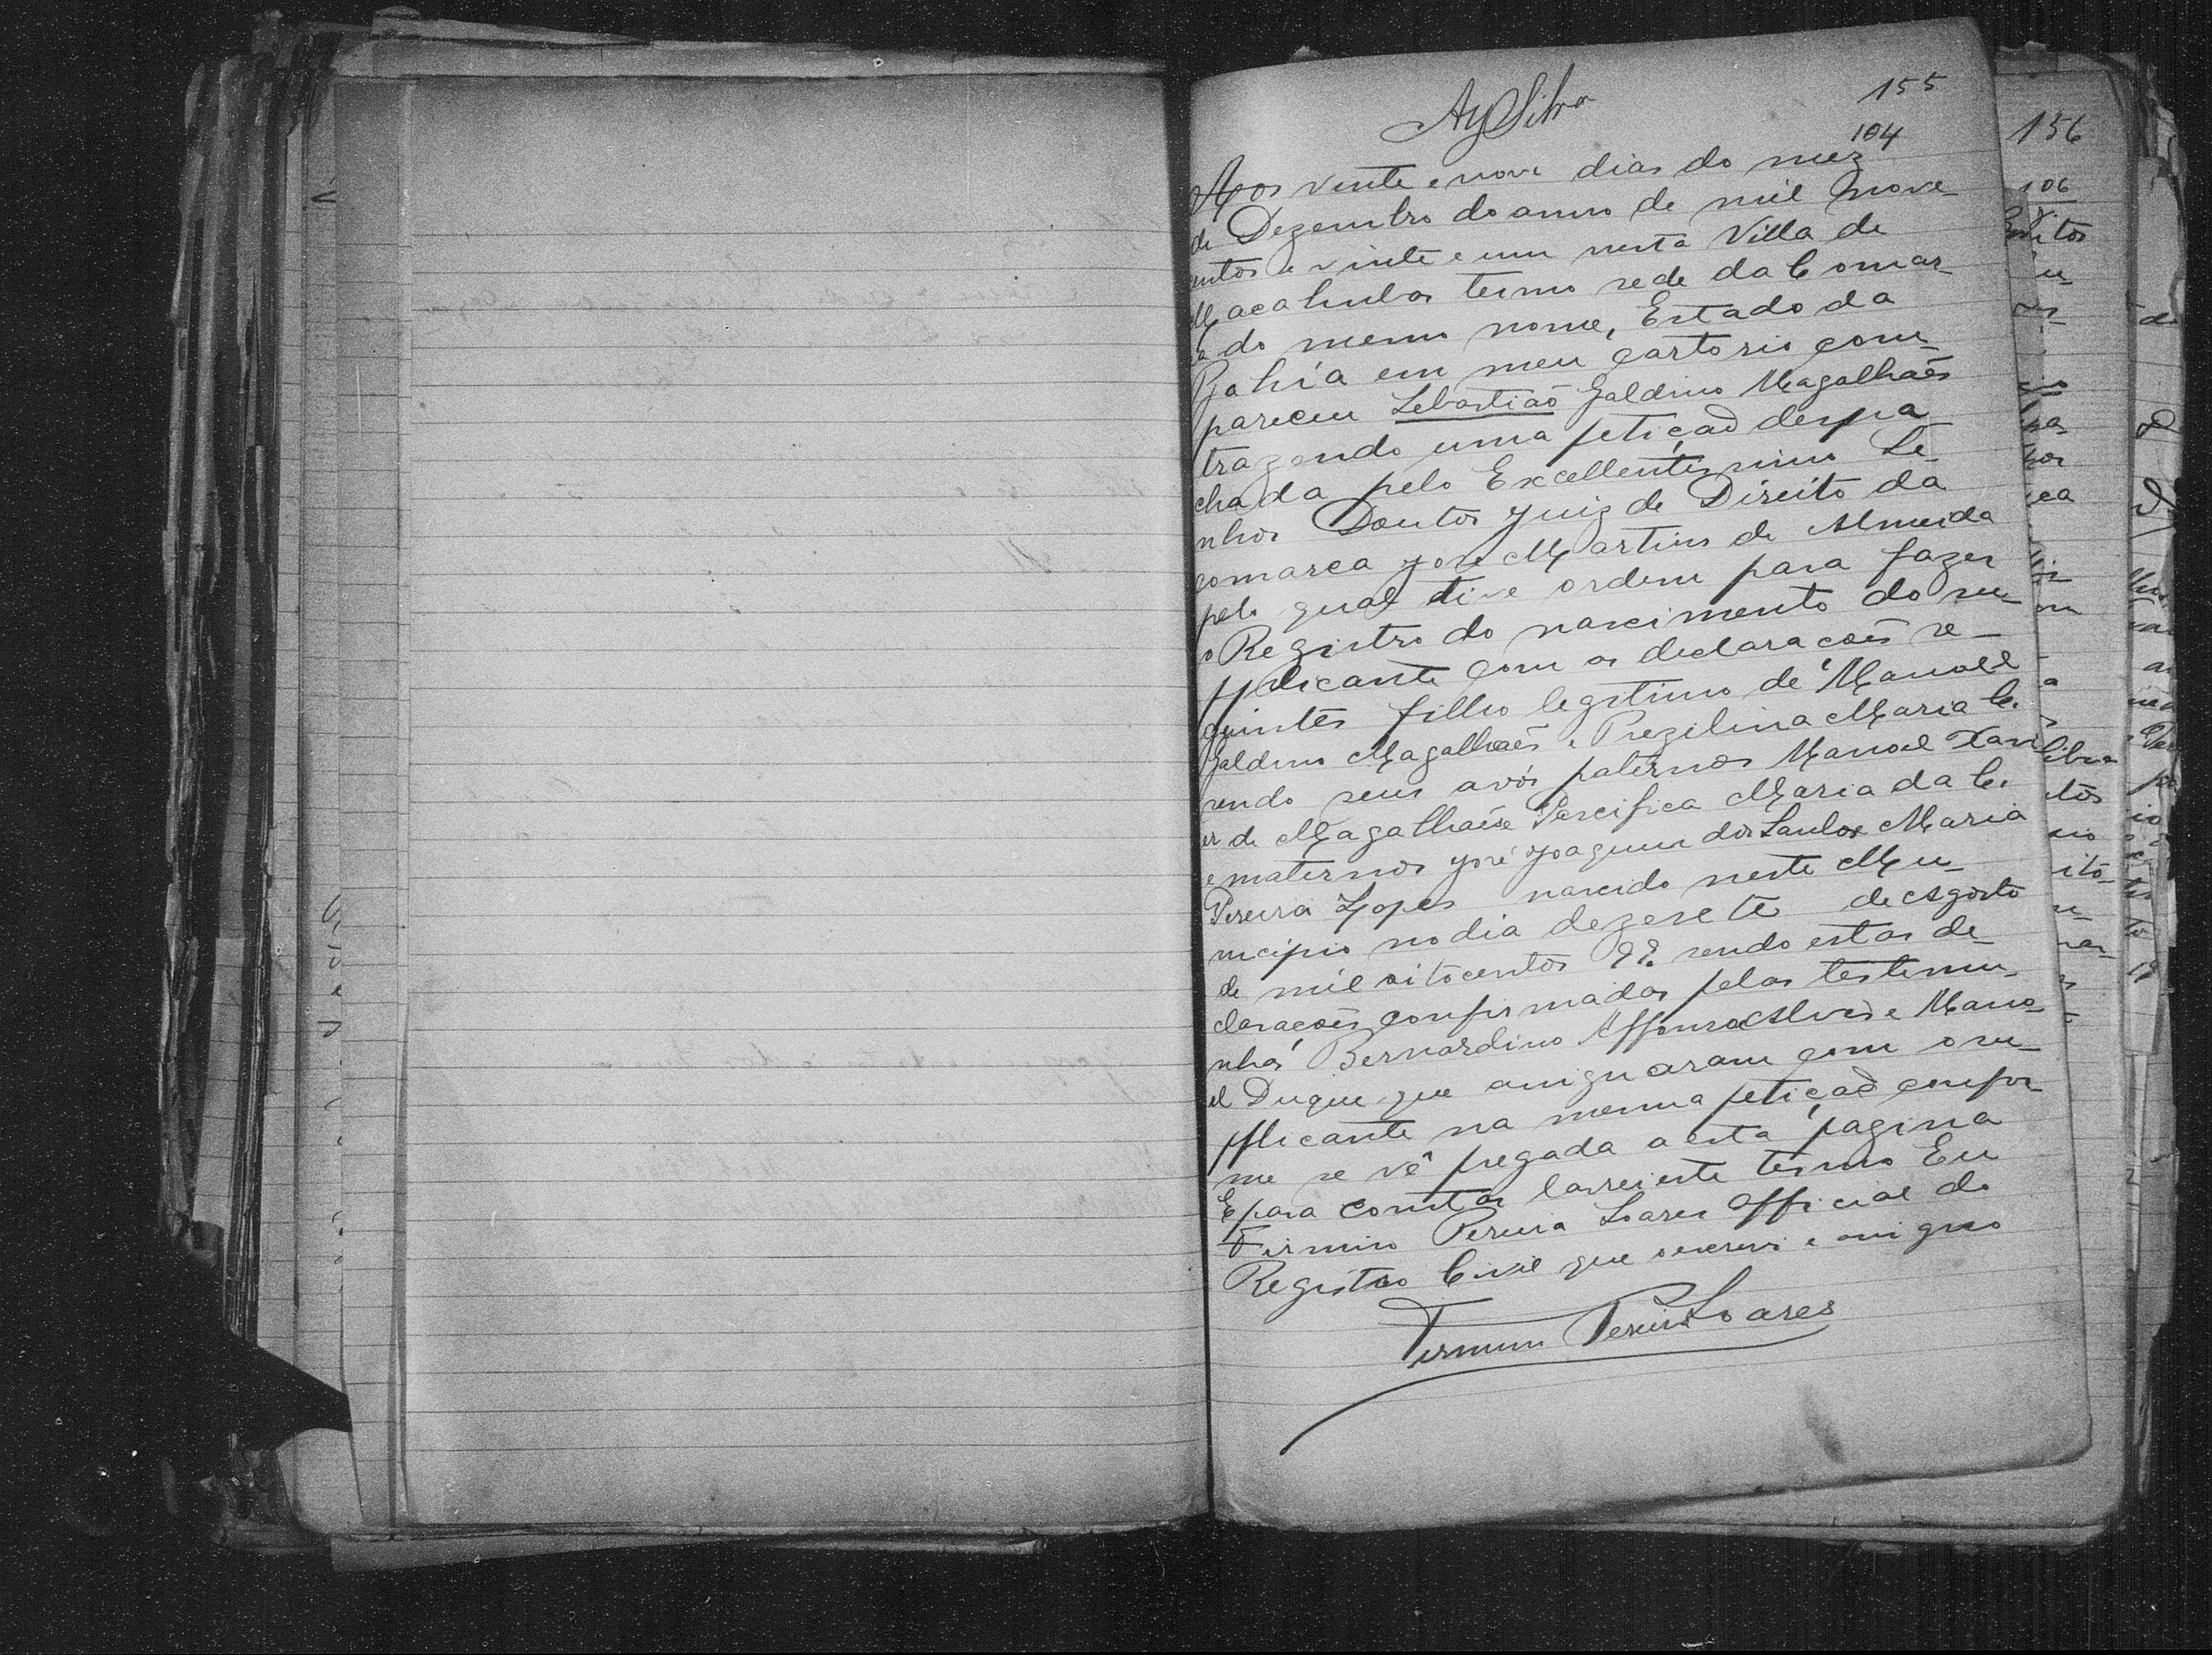 AySilva
155
104
Aos vinte e nove dias do mez
de Dezembro do anno de mil nove
entos e vinte e um nesta Villa de
Macahubas termo sede da Comar-
ca do mesmo nome, Estado da
Bahia em meu cartorio com-
pareceu Sebastião Galdino Magalhães
trazendo uma petiçaõ despa
chada pelo Excellentissimo Se-
nhor Doutor Juiz de Direito da
comarca José Martins de Almeida
pelo qual tive ordem para fazer
o Registro do nascimento do su-
pplicante com as declaracoẽs se-
guintes filho legitimo de Manoel
Galdino Magalhaẽs e Prezilina Maria C.
sendo seus avós paternos Manoel Xavi
er de Magalhaẽs e Pacifica Maria da C.
e maternos José Joaquim dos Santos e Maria
Pereira Lopes nascido neste Mu-
nicipio no dia dezesete de Agosto
de mil oitocentos 92 sendo estas de-
claraçoẽs confirmadas pelas testemu-
nhas Bernardino Affonso Alves e Mano-
el Duque que assignaram com o su-
pplicante na mesma petiçaõ confor-
me se vê pregada a esta pagina
E para constar lavrei este termo Eu
Firmino Pereira Soares Official do
Registro Civil que o escrevi e assigno
Firmino Pereira Soares
156
106